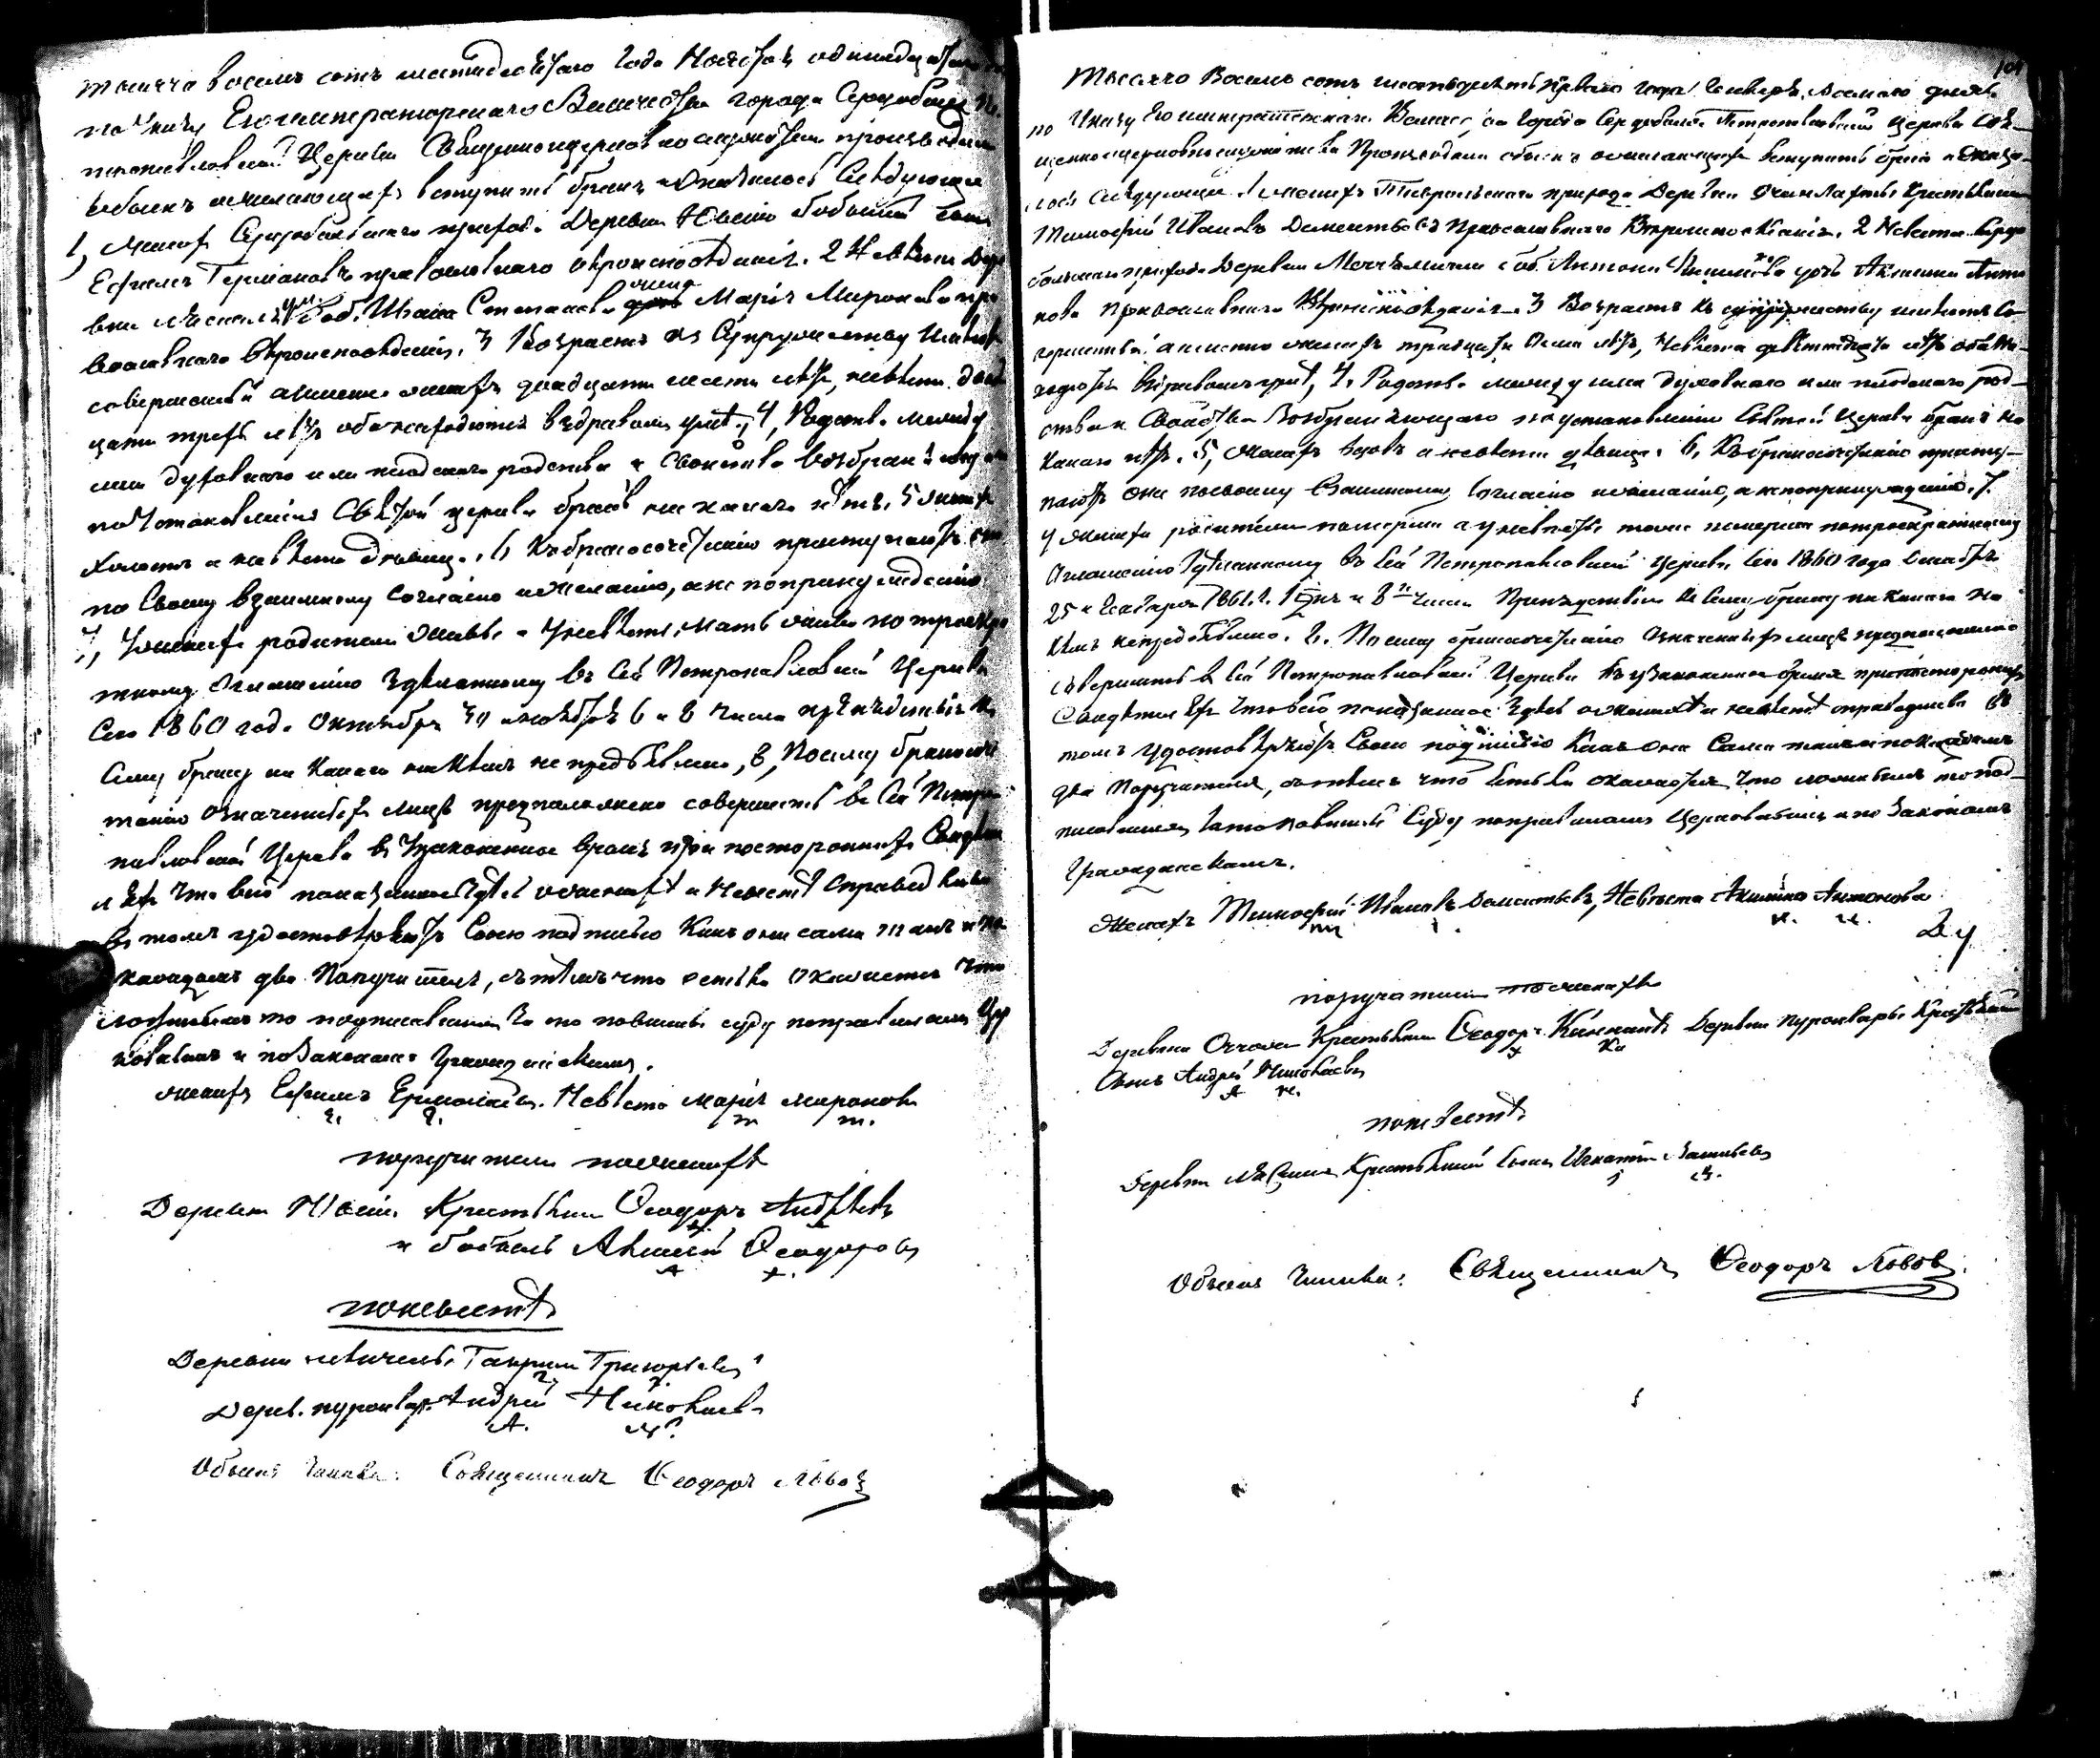 тысяча восемь сотъ шестидесятаго года Ноября одинадцатаго
по Указу Его императорскаго Величества города Сердоболя Пе
тропавловской Церкви Священноцерковнослужители производили
обыскъ о желающихъ вступить бракъ и оказалось Следующее
1, женихъ Сердобольскаго прихода Деревни бобыльский сынъ
Ефимъ Германовъ православнаго вероисповеданія. 2 Невеста Дере
вни боб. Ивана Степанова Марія Миронова пра
вославнаго вероисповеданія. 3 Возрастъ къ Супружеству имеютъ
совершенный а именно женихъ двадцати шести летъ, невеста двад
цати трехъ летъ оба находятся въ здравомъ уме. 4, Родства между
ими духовнаго или плотскаго родства и Свойства возбраняющаго
по Установленію Святой церкви бракъ ни какаго нетъ. 5 женихъ
холостъ а невеста девица. 6 Къ бракосочетанію приступаютъ они
по Своему взаимному согласію и желанію, а не по принужденію
7, У жениха родители живы а у невесты мать жива по троекра
тному оглашенію зделанному въ сей Петропавловской Церкви
Сего 1860 года Октября 30 и ноября 6 и 8 числа препятствія къ
Сему браку ни какаго никемъ не предъявлено, 8, Посему бракосоче
танію означенныхъ лицъ предположено совершить въ сей Петро
павловской Церкви въ Узаконенное время при постороннихъ Свидете
ляхъ Что всё показанное здесь о женихе и Невесте Справедливо
въ томъ удостоверяютъ Своею подписью Какъ они сами такъ и по
каждомъ два Поручителя, съ темъ что естьли окажется что
ложнымъ то подписавшіеся за то повинны суду по правиламъ Цер
ковнымъ и по Законамъ Гражданскимъ.
женихъ Ефимъ Невеста Марія Миронова
м. м.
поручители по женихе
Деревни Крестьянин Ѳеодоръ Андреевъ
и бобыль Алексей Ѳеодоровъ
А +.
по невесте
Деревни Гаврилъ Григорьевъ
Дерев. Андрей Николаевъ
А. Н.
Обыскъ Чинилъ: Священникъ Ѳеодоръ Львовъ
104
Тысяча Восемь сотъ шестьдесятъ перваго года Генваря осмаго дня
по Указу Его императорскаго Величества города Сердоболя Петропавловской Церкви Свя
щенноцерковнослужители Производили обыскъ о желающихъ вступить бракъ и оказа
лось Следующее 1 женихъ прихода Деревни Крестьянин
Тимофей Ивановъ Дементьевъ Православнаго Вероисповеданія. 2 Невеста Сердо
больскаго прихода Деревни боб. Антона дочь Акилина Анто
нова Православнаго Вероисповеданія. 3 Возрастъ къ супружеству имеютъ Со
вершенный а именно женихъ тридцати осми летъ, Невеста девятнадцати летъ оба на
ходятся въ здравомъ уме, 4. Родства между ими духовнаго или плотскаго род
ства и Свойства Возбраняющаго по установленію Святой Церкви бракъ ни
какаго нетъ. 5, женихъ вдовъ а невеста девица. 6, Къ бракосочетанію присту
паютъ они по своему Взаимному Согласію и желанію, а не по принужденію. 7.
У жениха родители померли а у невесты тоже померли по троекратному
Оглашенію зделанному въ Сей Петропавловской Церкви Сего 1860 года Декабря
25 и Генваря 1861 г. 1го и 8го числа Препятствія къ Сему браку ни какаго ни
кемъ не предъявлено. 8. Посему бракосочетанію Означенныхъ лицъ предположено
совершить въ Сей Петропавловской Церкви въ узаконенное время при постороннихъ
Свидетеляхъ Что всё показанное здесь о женихе и невесте справедливо въ
томъ удостоверяютъ Своею подписью Какъ они Сами такъ и по каждомъ
два Поручителя, съ темъ что естьли окажется что ложнымъ то под
писавшіеся за то повинны Суду по правиламъ Церковнымъ и по Законамъ
Гражданскимъ.
Женихъ Тимофей Ивановъ Дементьевъ, Невеста Акилина Антонова
поручители по женихе
Деревни Крестьянин Ѳеодоръ Деревни Крестьянский
Сынъ Андрей Николаевъ
А Н.
по невесте
Деревни Крестьянский Сынъ Игнатій Васильевъ
Обыскъ Чинилъ: Священникъ Ѳеодоръ Львовъ.